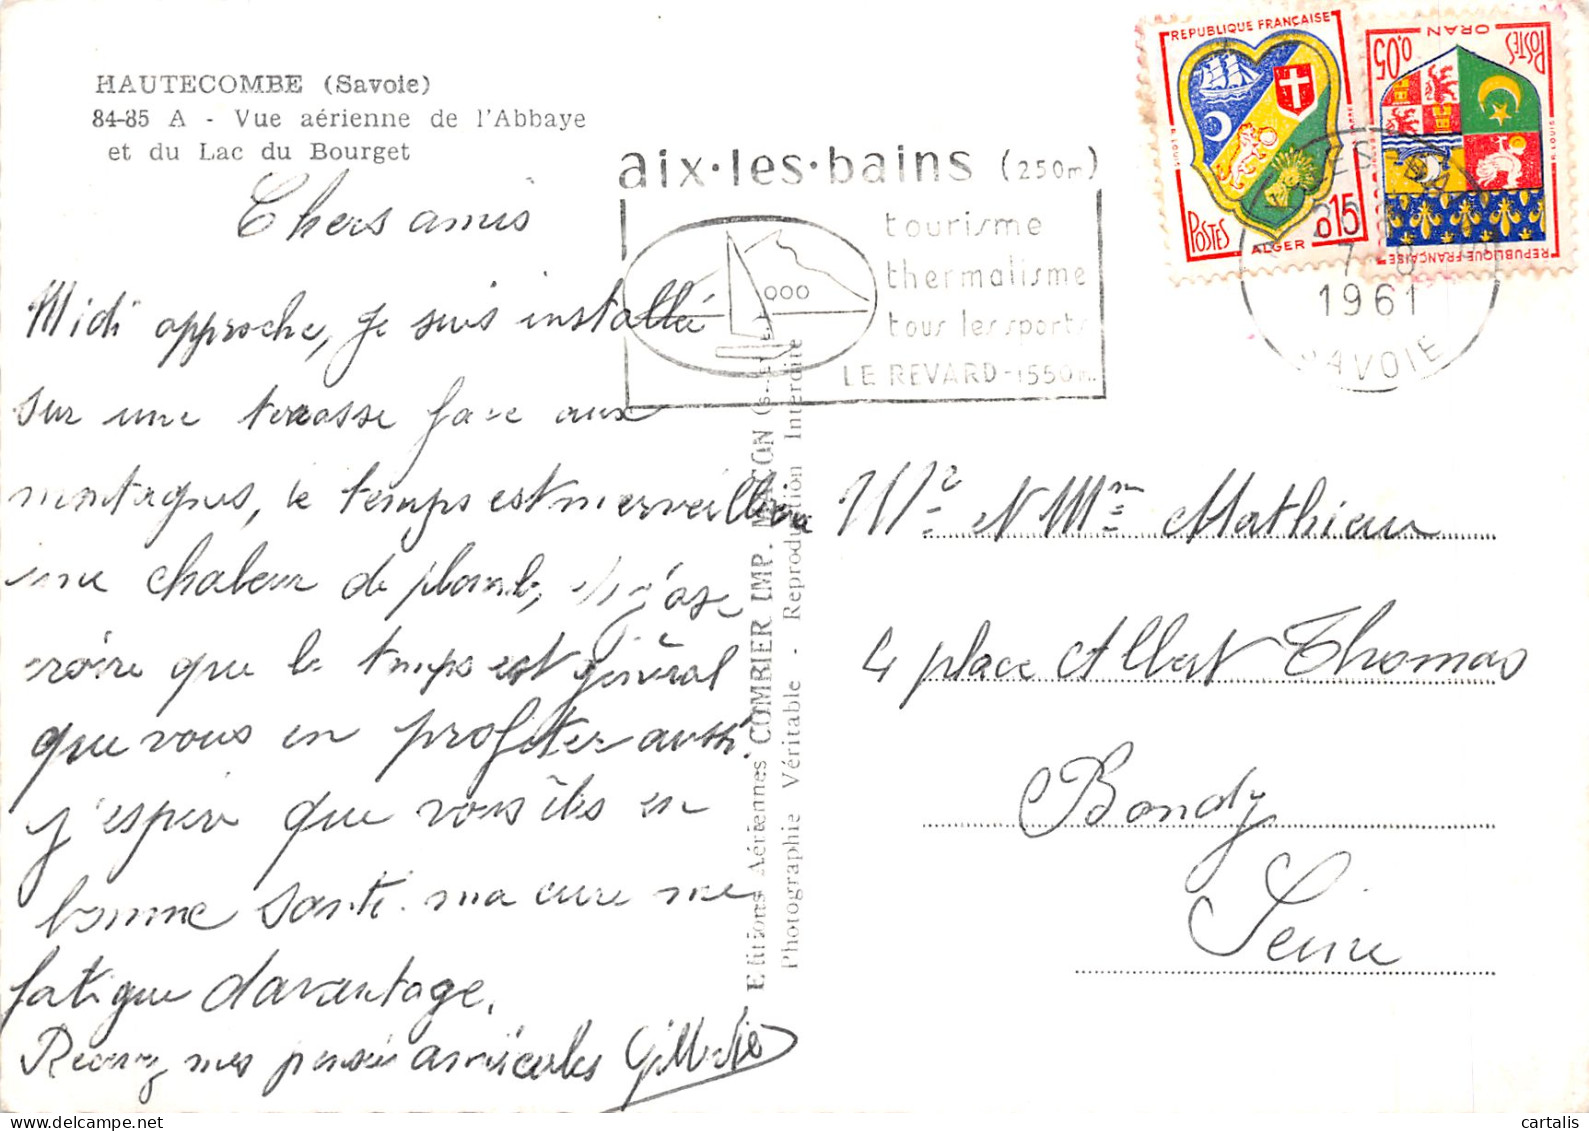 HAUTECOMBE (Savoie)
84-85 A - Vue aérienne de l'Abbaye
et du Lac du Bourget
Chers amis
Midi approche, je suis installé
sur une terrasse face aux
montagnes, le temps est merveilleux
une chaleur de plomb, j'ose
croire que le temps est général
que vous en profiter aussi.
J'espère que vous êtes en
bonne santé. ma cure me
fatigue davantage.
Recevez mes pensée amicales
aix·les·bains (250m)
tourisme
thermalisme
tous les sports
LE REVARD-1550m.
REPUBLIQUE FRANÇAISE
POSTES
0,15
ALGER
ORAN
POSTES
0,05
R. LOUIS
REPUBLIQUE FRANÇAISE
1961
SAVOIE
Editions Aériennes COMBIER IMP. MACON (S.-et-L.)
Photographie Véritable - Reproduction Interdite
Mr Mme Mathieu
4 place Albert Thomas
Bondy
Seine
cartalis